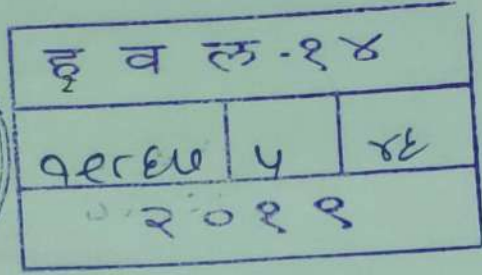 ह व ल - १४
१९८६७ ५ ४६
२०१९